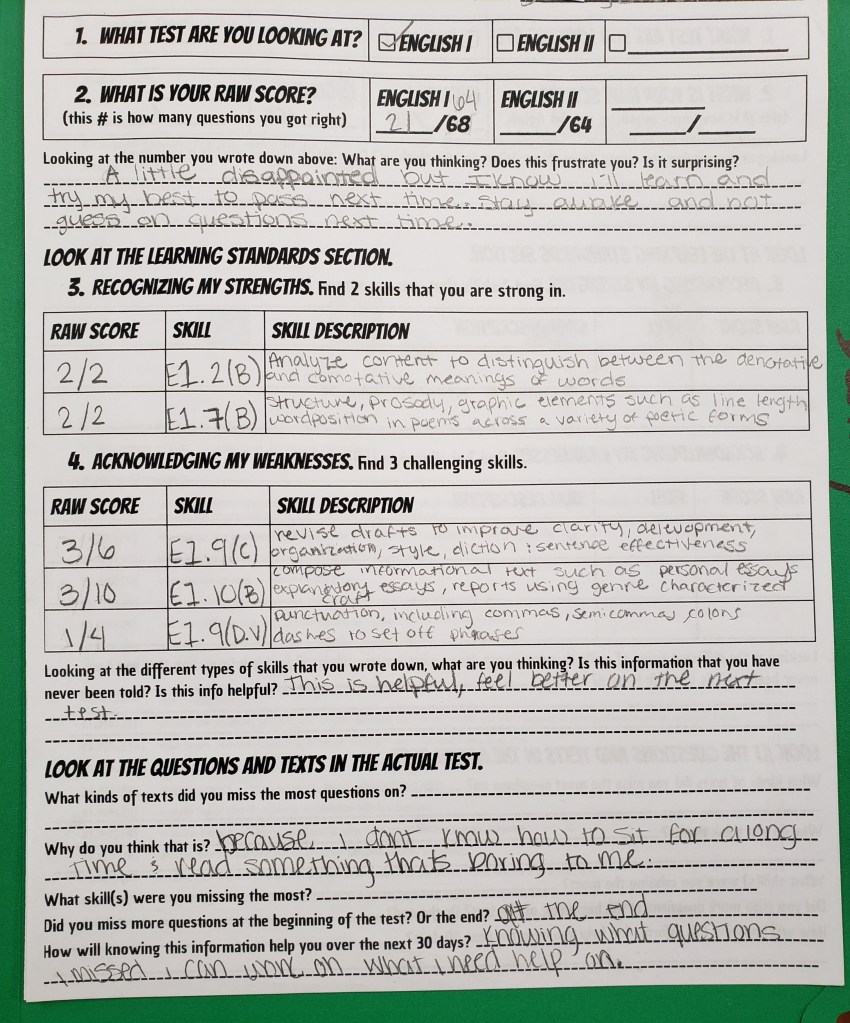 1. WHAT TEST ARE YOU LOOKING AT? ☑ ENGLISH I ☐ ENGLISH II ☐ __________
2. WHAT IS YOUR RAW SCORE? ENGLISH I 64 ENGLISH II
(this # is how many questions you got right) 21/68 ____/64 ____/____
Looking at the number you wrote down above: What are you thinking? Does this frustrate you? Is it surprising?
A little disappointed but I know i'll learn and
try my best to pass next time. Stay awake and not
guess on questions next time.
LOOK AT THE LEARNING STANDARDS SECTION.
3. RECOGNIZING MY STRENGTHS. Find 2 skills that you are strong in.
RAW SCORE SKILL SKILL DESCRIPTION
2/2 E1.2(B) Analyze content to distinguish between the denotative
and connotative meanings of words
2/2 E1.7(B) structure, prosody, graphic elements such as line length
wordposition in poems across a variety of poetic forms
4. ACKNOWLEDGING MY WEAKNESSES. Find 3 challenging skills.
RAW SCORE SKILL SKILL DESCRIPTION
3/6 E1.9(C) revise drafts to improve clarity, development,
organization, style, diction : sentence effectiveness
3/10 E1.10(B) compose informational text such as personal essays
explanatory essays, reports using genre characterized
craft
1/4 E1.9(D.V) punctuation, including commas, semicommas, colons
dashes to set off phrases
Looking at the different types of skills that you wrote down, what are you thinking? Is this information that you have
never been told? Is this info helpful? This is helpful, feel better on the next
test.
LOOK AT THE QUESTIONS AND TEXTS IN THE ACTUAL TEST.
What kinds of texts did you miss the most questions on?
Why do you think that is? because i dont know how to sit for a long
time & read something thats boring to me.
What skill(s) were you missing the most?
Did you miss more questions at the beginning of the test? Or the end? the end
How will knowing this information help you over the next 30 days? Knowing what questions
i missed i can work on what i need help on.